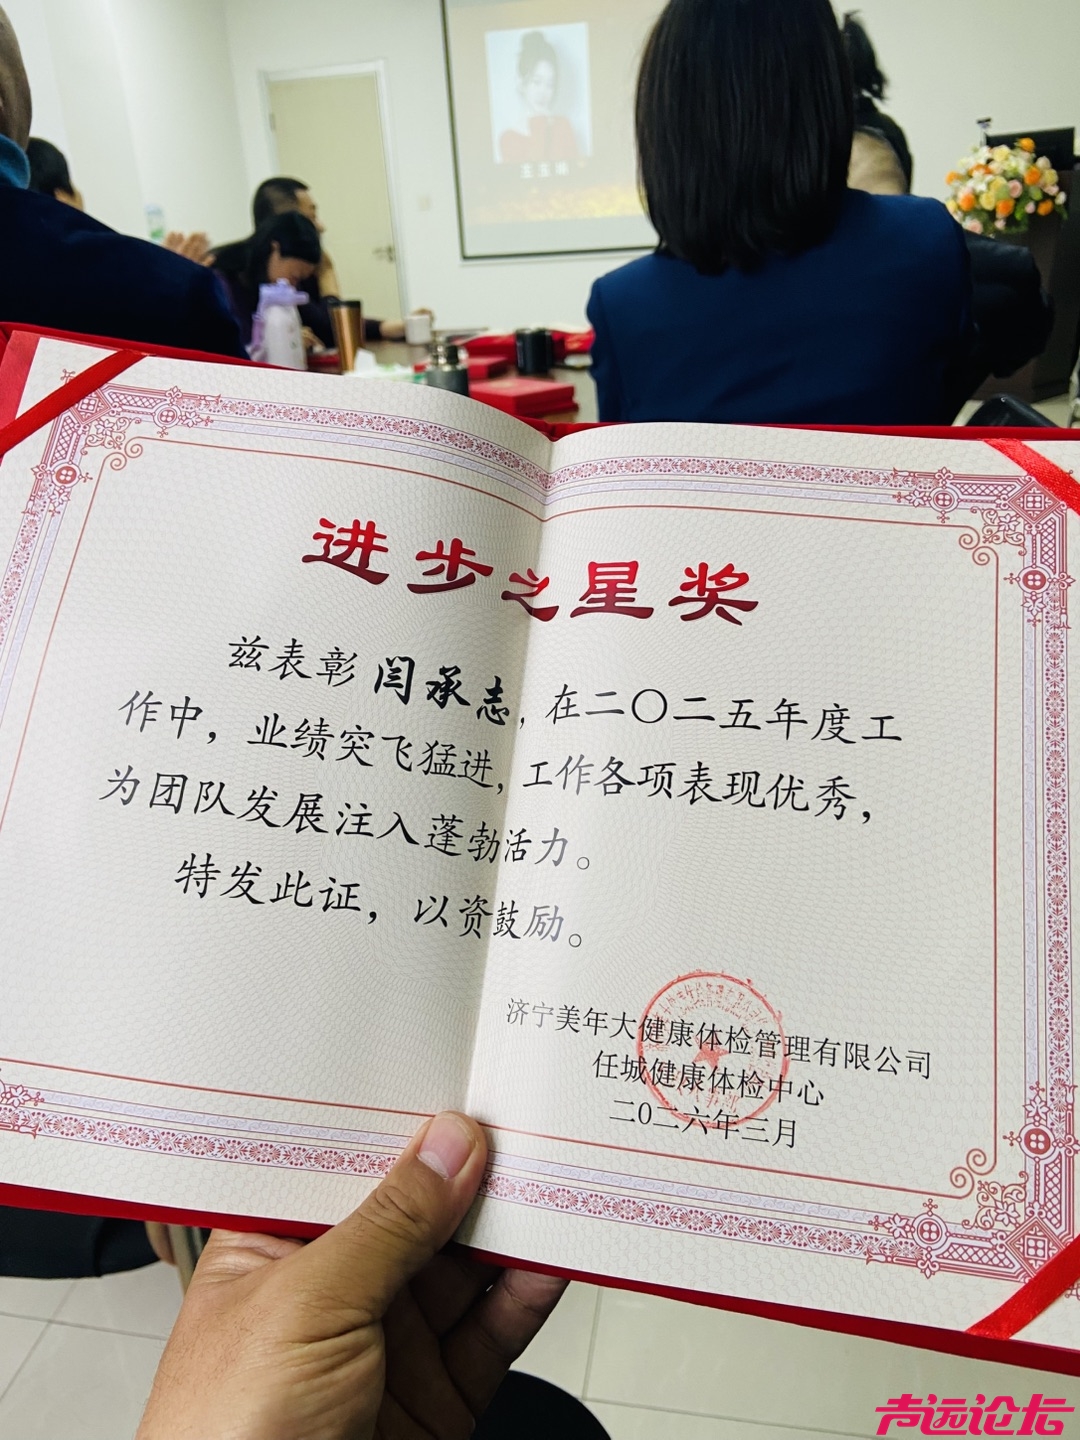 进步之星奖
兹表彰闫承志，在二〇二五年度工
作中，业绩突飞猛进，工作各项表现优秀，
为团队发展注入蓬勃活力。
特发此证，以资鼓励。
济宁美年大健康体检管理有限公司
任城健康体检中心
二〇二六年三月
声远论坛